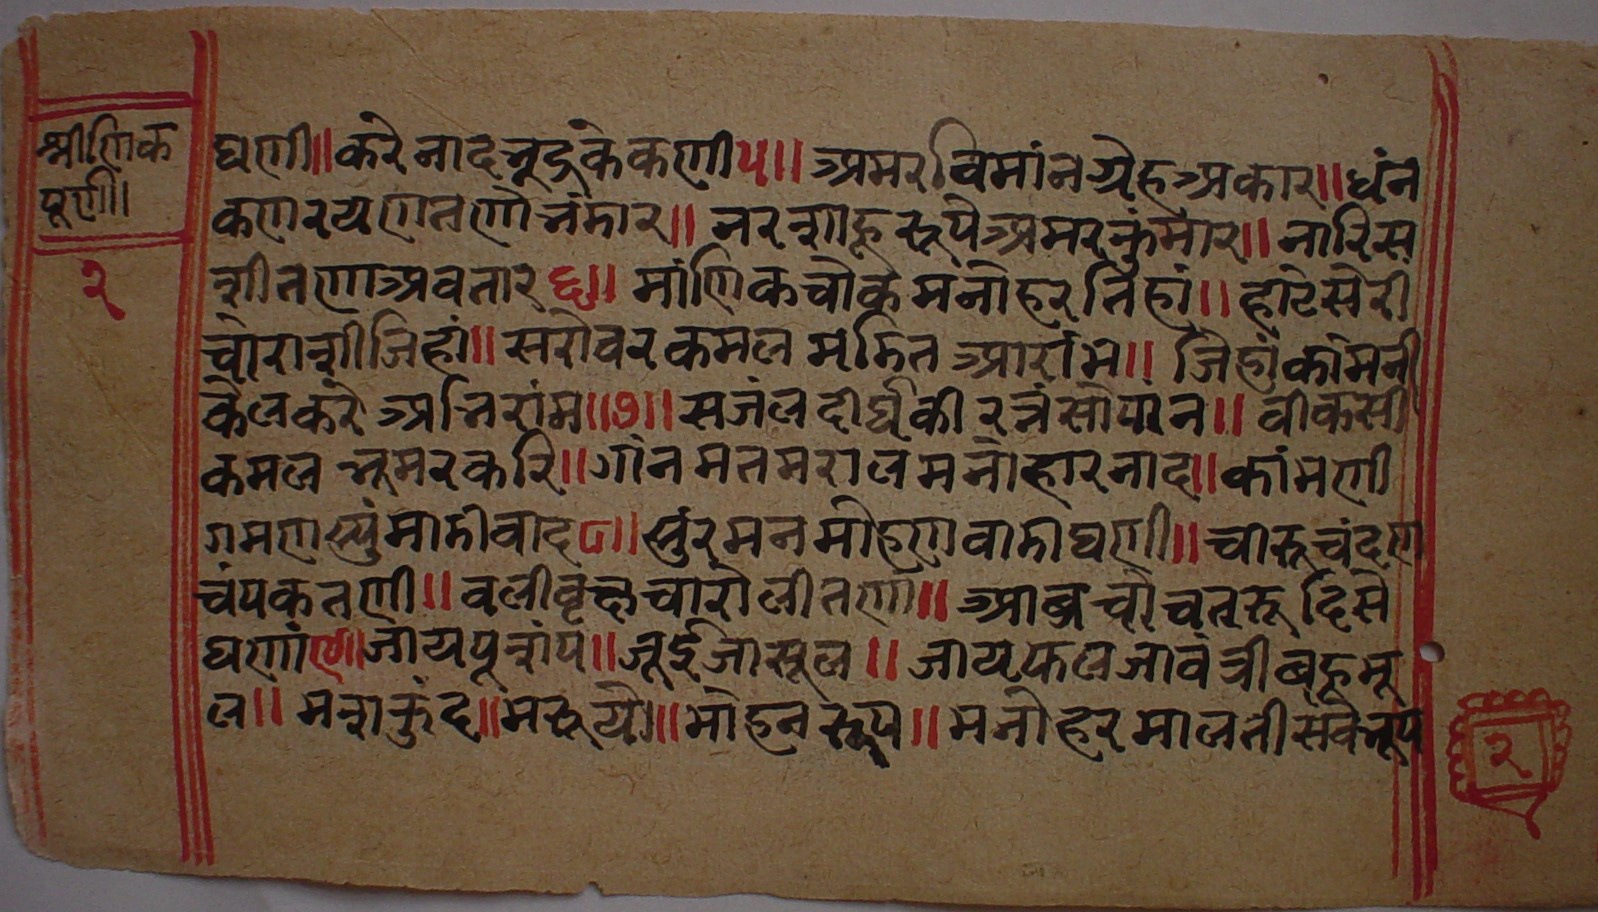 श्रीणिक
पूर्णी।
२
घणी॥करे नाद नूदुके कणी५॥ अमर विमांन ग्रेह अकार॥धंन
कण रयण तणो नंमार॥ नर न्शाहू रूपे अमर कुंमार॥ नारि स
न्शी तणा अवतार६॥ मांणिक चोक मनोहर तिहां॥ हाटे सेरी
चोरान्शी जिहां॥ सरोवर कमल मंमित आरांम॥ जिहां कांमनी
केल करे अनिरांम॥७॥ सजंल दीर्घकी रत्नं सोपांन॥ वीकसी
कमल नूमर करि॥गांन मत मराल मनोहार नाद॥कांमणी
गमण स्युं मामी वाद८॥ सुंर मन मोहण वामी घणी॥ चारू चंदण
चंपक तणी॥ वली वृक्ष चारोली तणां॥ आम्र चो चतरू दिसे
घणां९॥जाय पूनांप॥जूई जासूल॥ जायफल जावंत्री बहू मू
ल॥ मचाकुंद॥मरूयो॥मोहन रूप॥ मनोहर मालती सके नूप
२